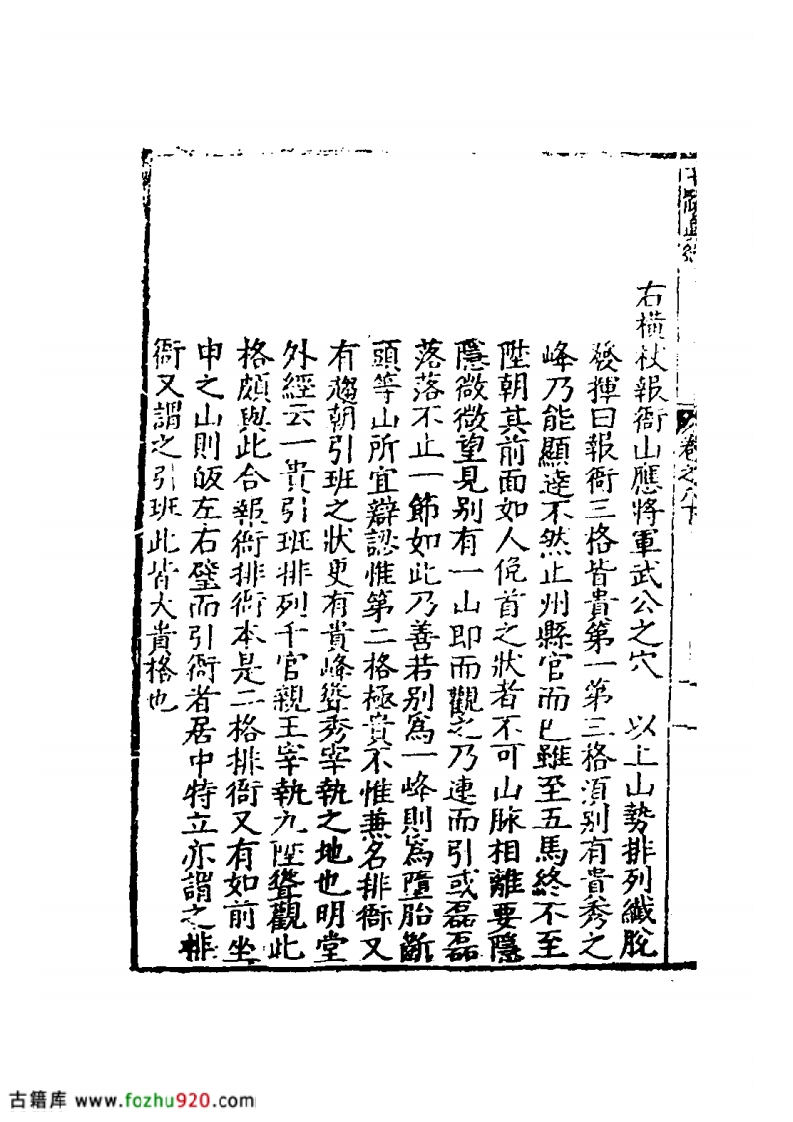 卷之八下
右橫杖報衙山應將軍武公之穴　以上山勢排列纖脫
發揮曰報衙三格皆貴第一第三格須别有貴秀之
峰乃能顯達不然止州縣官而已雖至五馬終不至
陞朝其前面如人俛首之狀者不可山脉相離要隱
隱微微望見别有一山即而觀之乃連而引或磊磊
落落不止一節如此乃善若别爲一峰則爲墮胎斷
頭等山所宜辯認惟第二格極貴不惟兼名排衙又
有趨朝引班之狀更有貴峰聳秀宰執之地也明堂
外經云一貴引班排列千官親王宰執九陛聳觀此
格頗與此合報衙排衙本是二格排衙又有如前坐
申之山則皈左右璧而引衙者居中特立亦謂之排
衙又謂之引班此皆大貴格也
古籍库 www.fozhu920.com